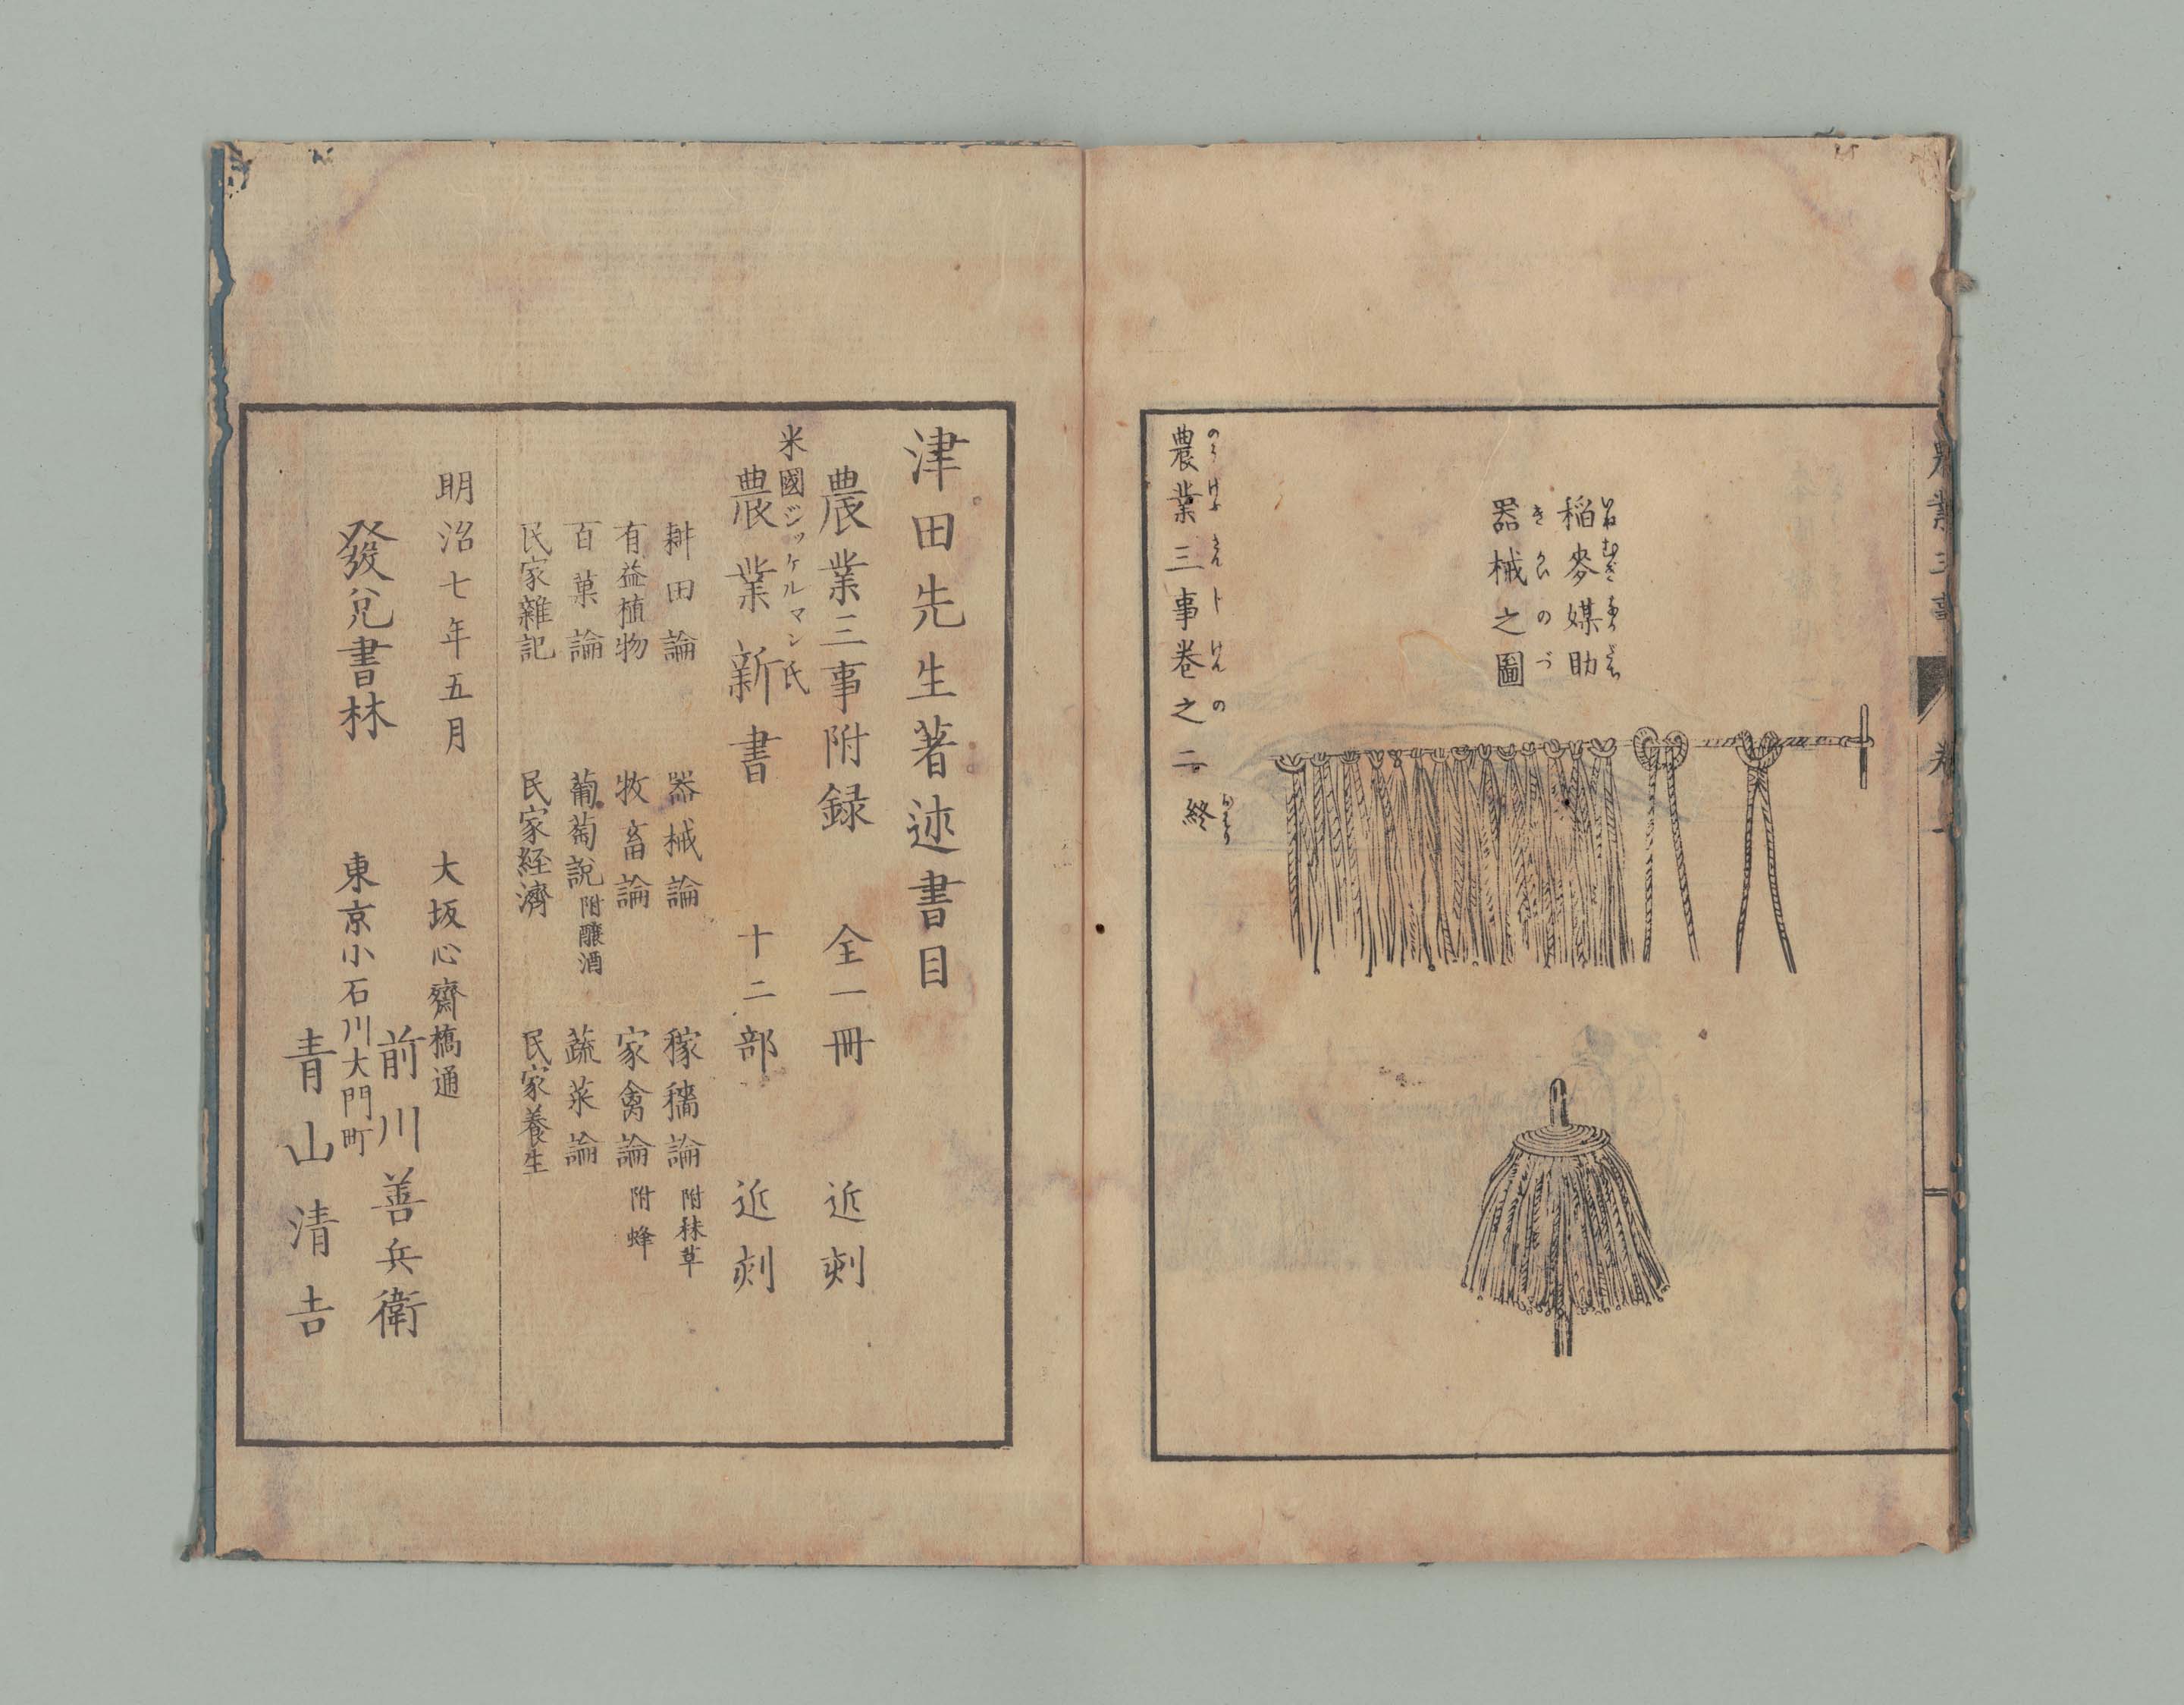 農業三事 卷
稲麥媒助
いねむぎ
器械之圖
きかいのづ
農業三事卷之二 終
津田先生著述書目
農業三事附録 全一冊 近刻
米國ジッケルマン氏
農業新書 十二部 近刻
耕田論 器械論 稼穡論 附秣草
有益植物 牧畜論 家禽論 附蜂
百菓論 葡萄説 附釀酒 蔬菜論
民家雜記 民家経濟 民家養生
明治七年五月
發兌書林
大坂心齋橋通
前川善兵衛
東京小石川大門町
青山清吉